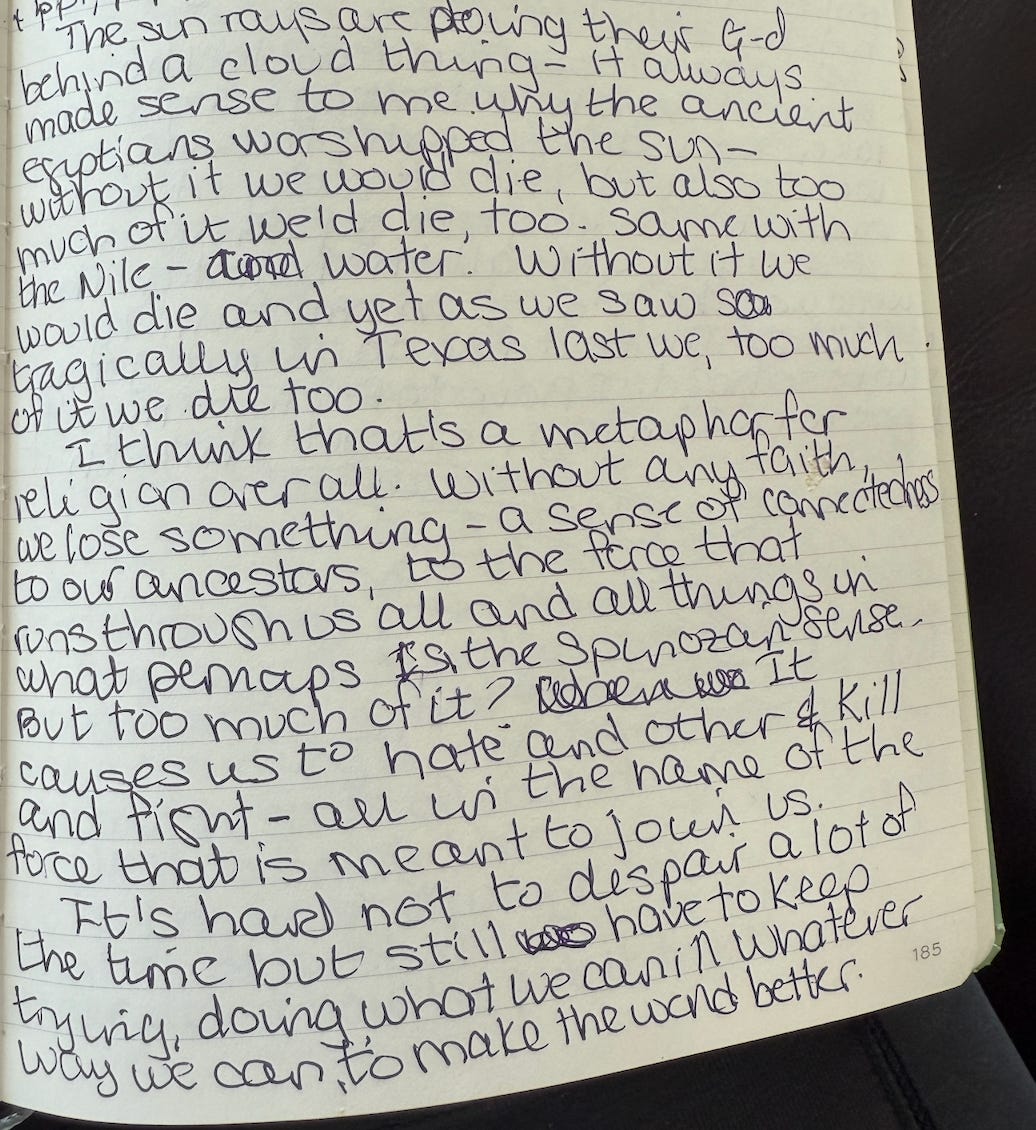 The sun rays are doing their G-d
behind a cloud thing - it always
made sense to me why the ancient
egyptians worshupped the sun -
without it we would die, but also too
much of it we'd die, too. Same with
the Nile - water. Without it we
would die and yet as we saw
tragically in Texas last we, too much
of it we die too.
I think that's a metaphor for
religion overall. Without any faith,
we lose something - a sense of connectedness
to our ancestors, to the force that
runs through us all and all things in
what perhaps is the Spinozan sense.
But too much of it? It
causes us to hate and other & kill
and fight - all in the name of the
force that is meant to join us.
It's hard not to despair a lot of
the time but still have to keep
trying, doing what we can in whatever
way we can, to make the world better.
185